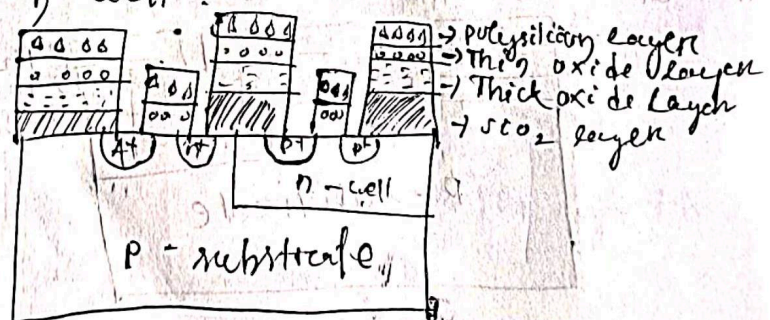 → polysilicon layer
→ Thin oxide layer
→ Thick oxide layer
→ SiO2 layer
n+ n+ p+ p+
n - well
P - substrate